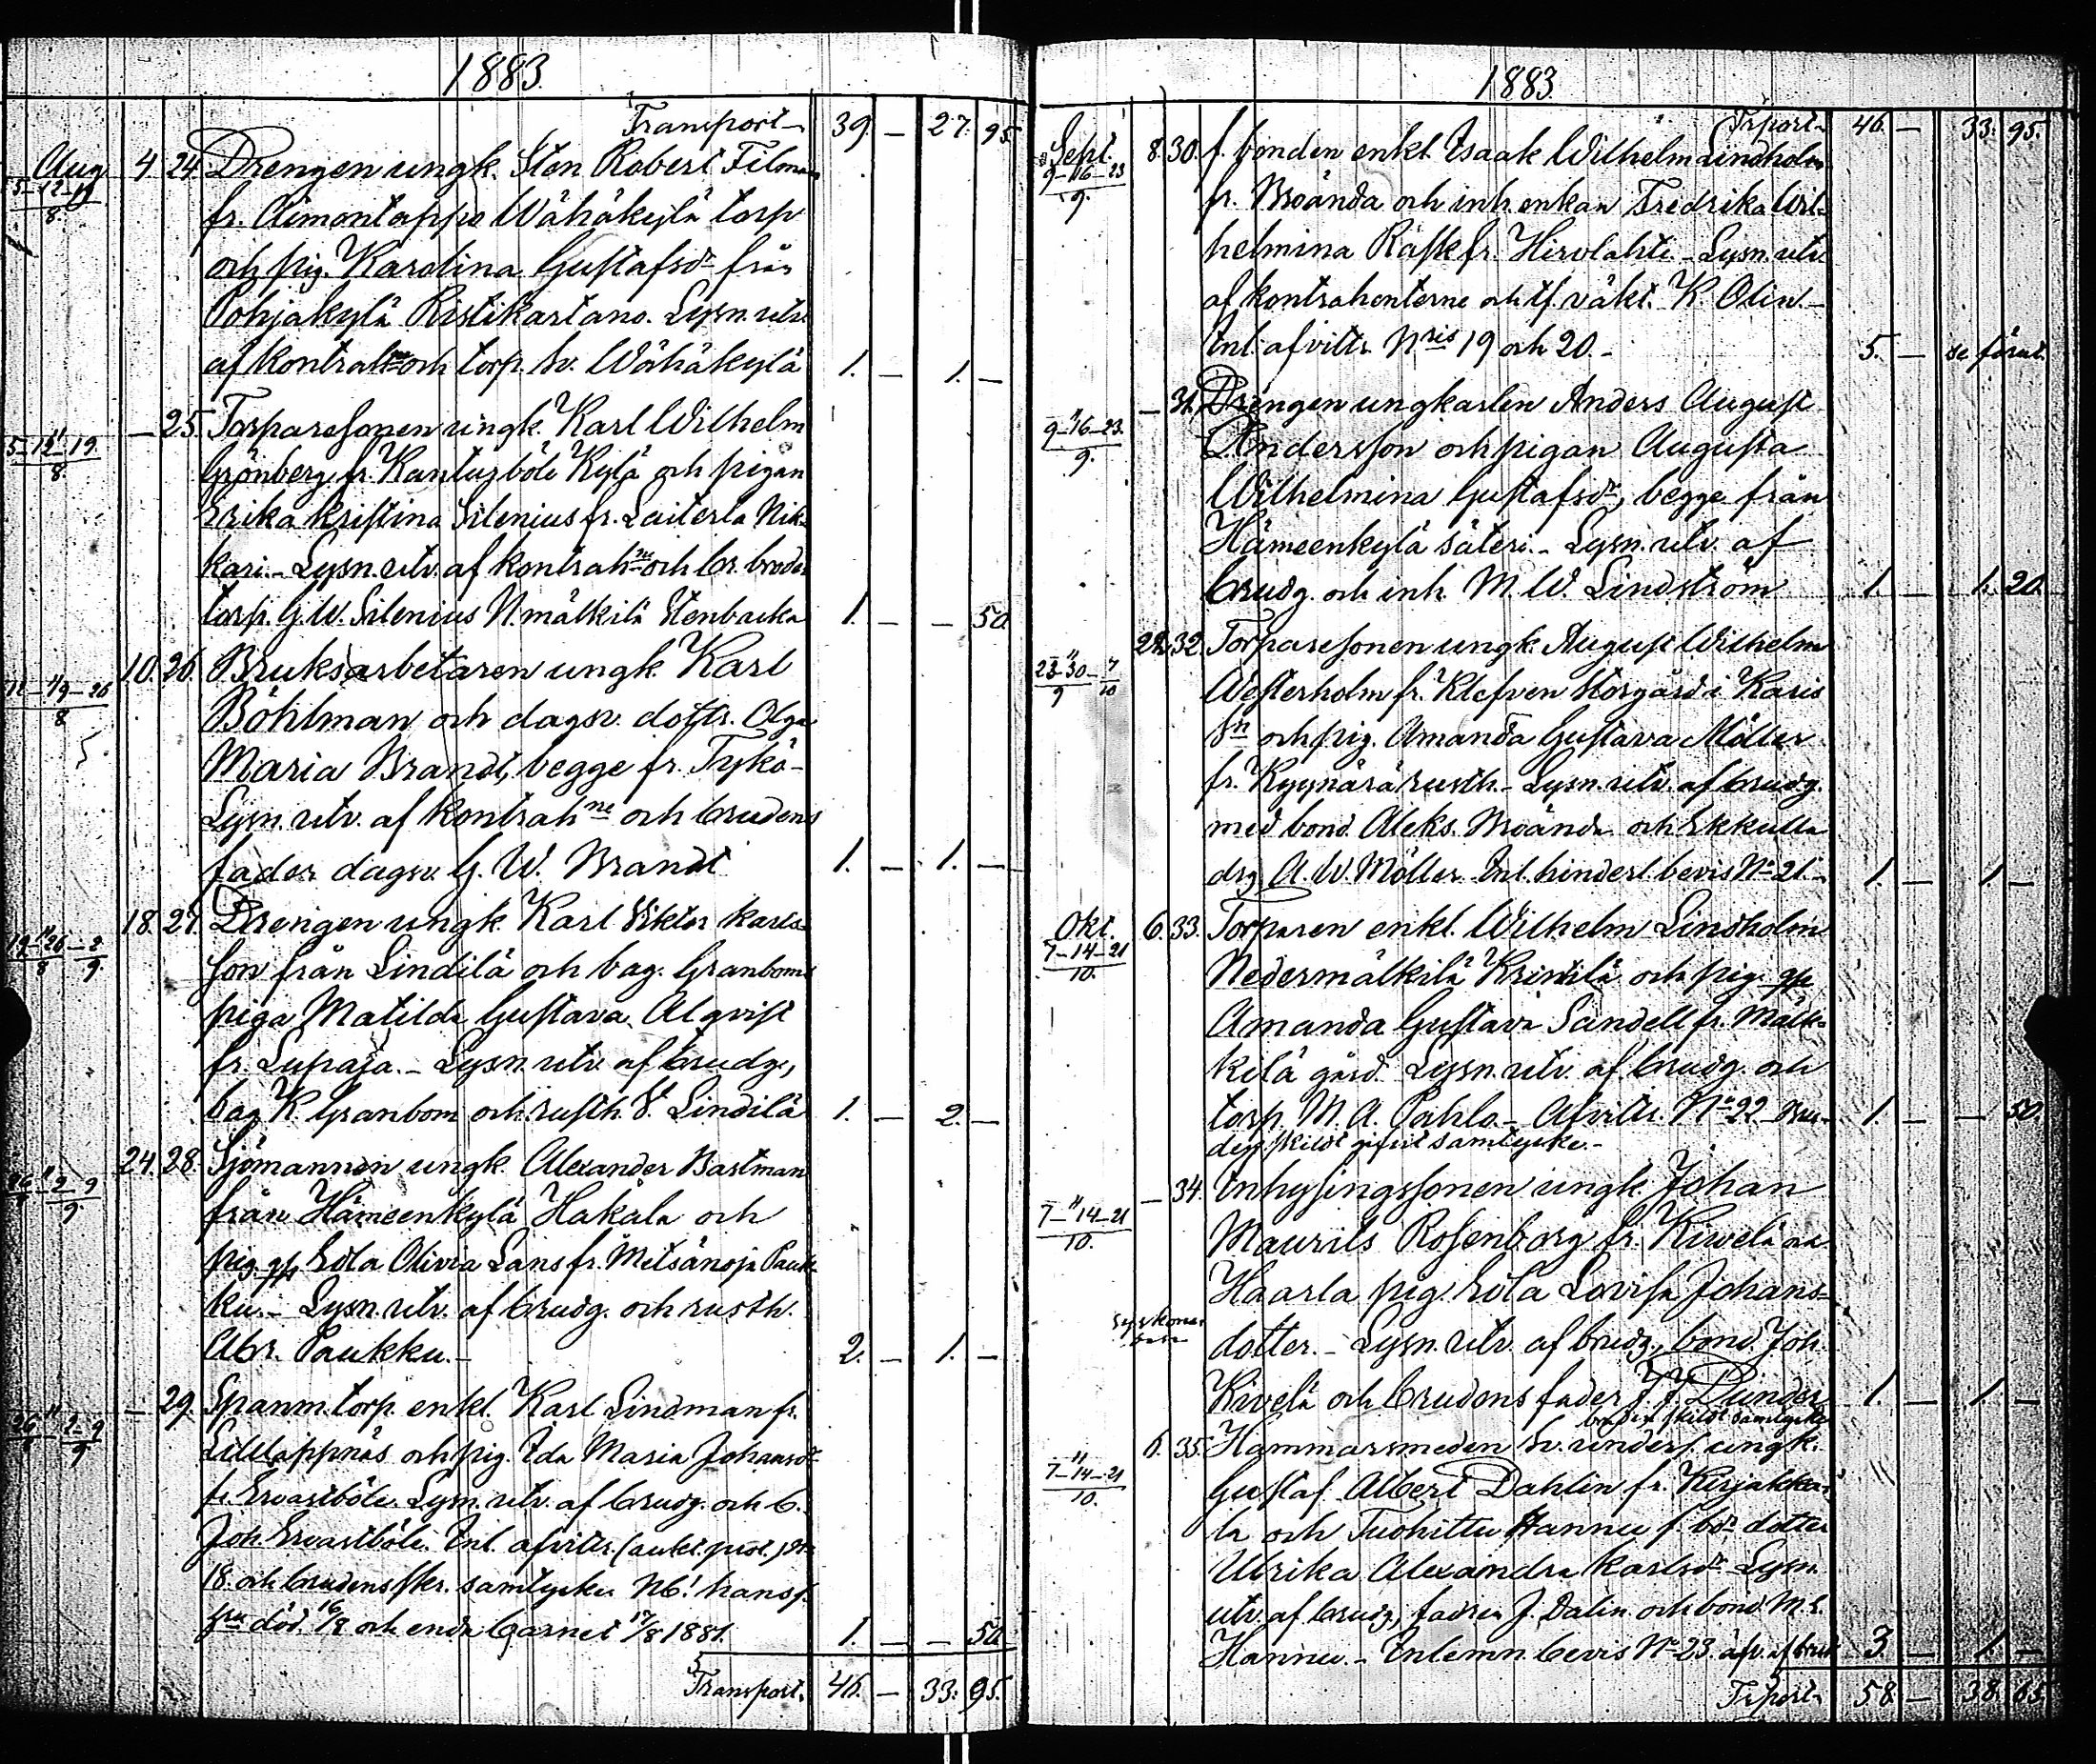 1883.
Transport 39. — 27. 95.
Aug 4 24. Drengen ungk. Sten Robert Filman
5-12-19/8. fr. Aimontappo Wähäkylä torp
och pig. Karolina Gustafsdr från
Pohjakylä Ristikartano. Lysn. utv.
af kontrahne och torp. Sv. Wähäkylä 1. — 1. —
— 25. Torparesonen ungk. Karl Wilhelm
5-12-19/8. Grönberg fr. Kantusböle Kylä och pigan
Erika Kristina Silenius fr. Laiterla Nik-
kari. – Lysn. utv. af kontrahne och br. broder
torp. G. W. Silenius N. mälkilä Stenbacka 1. — — 50.
10. 26. Bruksarbetaren ungk. Karl
12-19-26/8 Böhlman och dagsv. dottr. Olga
Maria Brandt, begge fr. Tykö –
Lysn. utv. af kontrahne och brudens
fader dagsv. G. W. Brandt 1. — 1. —
18. 27. Drengen ungk. Karl Viktor Karls-
19-26/8-2/9. son från Lindilä och bag. Granboms
piga Matilda Gustava Alqvist
fr. Lupaja. – Lysn. utv. af brudg.,
bag K. Granbom och rusth. V. Lindilä 1. — 2. —
24. 28. Sjömannen ungk. Alexander Bastman
26/8-2-9/9. från Hämeenkylä Hakala och
pig. Eola Olivia Lans fr. Metsänoja Pauk-
ku. – Lysn. utv. af brudg. och rusth.
Abr. Paukku. – 2. — 1. —
— 29. Spanm. torp. enkl. Karl Lindman fr.
26/8-2-9/9 Lilllappnäs och pig. Ida Maria Johansdr
fr. Ervastböle. Lysn. utv. af brudg. och b.
Joh. Ervastböle. Inl. afvittr. (aukt. prot.)
18. och brudens skr. samtycke NB! hans f.
fru död. 16/8 och enda barnet 17/8 1881. 1. — — 50.
Transport. 46. — 33. 95.
1883.
Trport 46. — 33. 95.
Sept. 8. 30. f. bonden enkl. Isaak Wilhelm Lindholm
9-16-23/9. fr. Broända och inh. enkan Fredrika Wil-
helmina Räsk fr. Hirvlahti. – Lysn. utv.
af kontrahenterne och tf. väkt. K. Olin. –
Inl. afvittr. Nris 19 och 20. – 5. — se förut.
— 31. Drengen ungkarlen Anders August
9-16-23./9. Andersson och pigan Augusta
Wilhelmina Gustafsdr, begge från
Hämeenkylä säteri. – Lysn. utv. af
brudg. och inh. M. W. Lindström 1. — 1. 20.
22. 32. Torparesonen ungk. August Wilhelm
23-30/9-7/10 Westerholm fr. Klefven Storgård i Karis
Sn och pig. Amanda Gustava Möller
fr. Kyynärä rusth. – Lysn. utv. af brudg.
med bond. Aleks. Broända och Ekkulla
drg A. W. Möller. Inl. hinderl. bevis No 21 – 1. — 1. —
Okt. 6. 33. Torparen enkl. Wilhelm Lindholm
7-14-21/10. Nedermälkilä Krinilä och pig.
Amanda Gustava Sandell fr. Mälk-
kilä gård. Lysn. utv. af brudg. och
torp. M. A. Pahlo – Afvittr. No 22 Bru- 1. — — 50.
den skildt gifvit samtycke. –
— 34. Inhysingssonen ungk. Johan
7-14-21/10. Maurits Rosenborg fr. Kiwelä
Haarla pig. Eola Lovisa Johans-
syskonebarn dotter. – Lysn. utv. af brudg., bond. Joh.
Kivelä och brudens fader J. J. Dunder 1. — 1. —
bruden skildt samtycke
6. 35. Hammarsmeden Sv. unders. ungk.
7-14-21/10. Gustaf Albert Dahlin fr. Kirjakka-
la och Tuohittu Hannu f. bdr dotter
Ulrika Alexandra Karlsdr Lysn.
utv. af brudg., fadren J. Dalin och bond. M. E.
Hannu. – Inlemn. bevis No 23. äfv. af brud 3. — 1. —
Trport 58 — 38. 65.